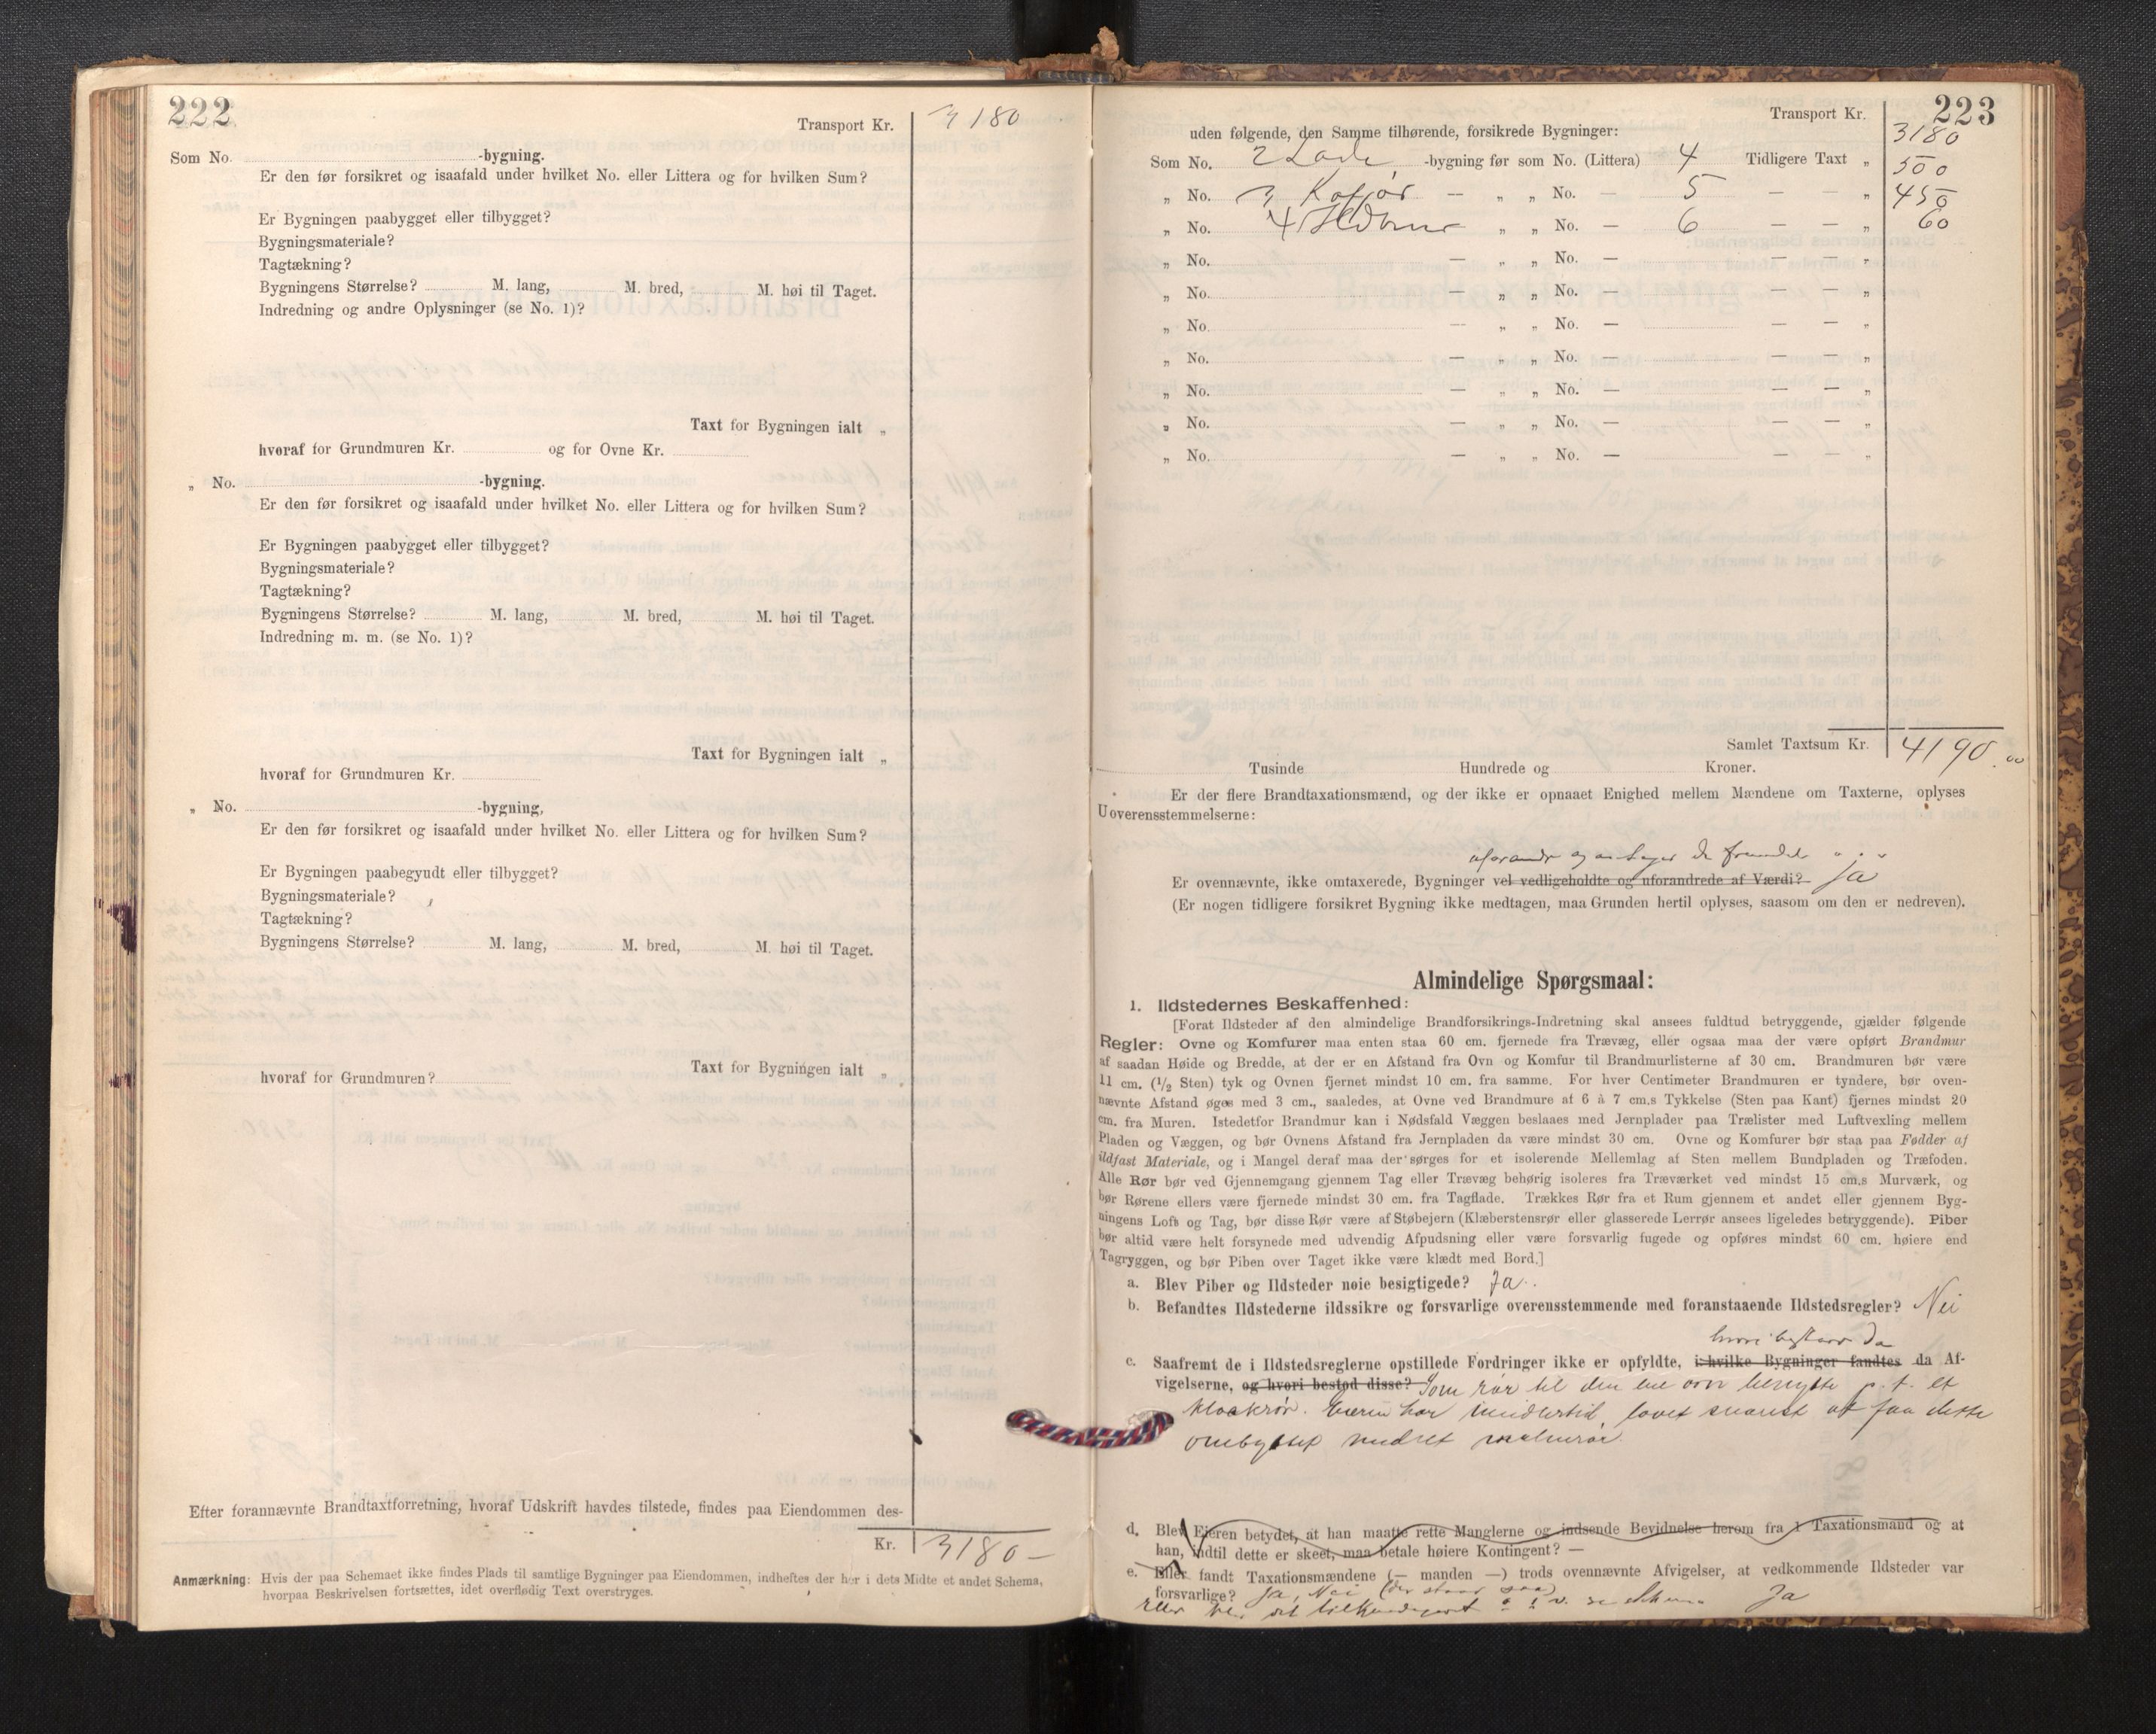 222
Transport Kr. 3180
Som No. -bygning.
Er den før forsikret og isaafald under hvilket No. eller Littera og for hvilken Sum?
Er Bygningen paabygget eller tilbygget?
Bygningsmateriale?
Tagtækning?
Bygningens Størrelse? M. lang, M. bred, M. høi til Taget.
Indredning og andre Oplysninger (se No. 1)?
Taxt for Bygningen ialt „
hvoraf for Grundmuren Kr. og for Ovne Kr.
„ No. -bygning.
Er den før forsikret og isaafald under hvilket No. eller Littera og for hvilken Sum?
Er Bygningen paabygget eller tilbygget?
Bygningsmateriale?
Tagtækning?
Bygningens Størrelse? M. lang, M. bred, M. høi til Taget.
Indredning m. m. (se No. 1)?
Taxt for Bygningen ialt „
hvoraf for Grundmuren Kr.
„ No. -bygning,
Er den før forsikret og isaafald under hvilket No. eller Littera og for hvilken Sum?
Er Bygningen paabegyudt eller tilbygget?
Bygningsmateriale?
Tagtækning?
Bygningens Størrelse? M. lang, M. bred, M. høi til Taget.
Taxt for Bygningen ialt „
hvoraf for Grundmuren?
Efter forannævnte Brandtaxtforretning, hvoraf Udskrift havdes tilstede, findes paa Eiendommen des-
Kr. 3180 —
Anmærkning: Hvis der paa Schemaet ikke findes Plads til samtlige Bygninger paa Eiendommen, indheftes der her i dets Midte et andet Schema,
hvorpaa Beskrivelsen fortsættes, idet overflødig Text overstryges.
223
Transport Kr. 3180
uden følgende, den Samme tilhørende, forsikrede Bygninger:
Som No. 2 Lade -bygning før som No. (Littera) 4 Tidligere Taxt „ 500
„ No. 3 — „ „ No. — 5 — — „ 450
„ No. 4 „ „ No. — 6 — — „ 60
„ No. — „ „ No. — — — „
„ No. — „ „ No. — — — „
„ No. — „ „ No. — — — „
„ No. — „ „ No. — — — „
„ No. — „ „ No. — — — „
„ No. — „ „ No. — — — „
„ No. — „ „ No. — — — „
Samlet Taxtsum Kr. 4190.00
Tusinde Hundrede og Kroner.
Er der flere Brandtaxationsmænd, og der ikke er opnaaet Enighed mellem Mændene om Taxterne, oplyses
Uoverensstemmelserne:
Er ovennævnte, ikke omtaxerede, Bygninger vel vedligeholdte og uforandrede af Værdi? Ja
(Er nogen tidligere forsikret Bygning ikke medtagen, maa Grunden hertil oplyses, saasom om den er nedreven).
Almindelige Spørgsmaal:
1. Ildstedernes Beskaffenhed:
[Forat Ildsteder af den almindelige Brandforsikrings-Indretning skal ansees fuldtud betryggende, gjælder følgende
Regler: Ovne og Komfurer maa enten staa 60 cm. fjernede fra Trævæg, eller ogsaa maa der være opført Brandmur
af saadan Høide og Bredde, at der er en Afstand fra Ovn og Komfur til Brandmurlisterne af 30 cm. Brandmuren bør være
11 cm. (1/2 Sten) tyk og Ovnen fjernet mindst 10 cm. fra samme. For hver Centimeter Brandmuren er tyndere, bør oven-
nævnte Afstand øges med 3 cm., saaledes, at Ovne ved Brandmure af 6 à 7 cm.s Tykkelse (Sten paa Kant) fjernes mindst 20
cm. fra Muren. Istedetfor Brandmur kan i Nødsfald Væggen beslaaes med Jernplader paa Trælister med Luftvexling mellem
Pladen og Væggen, og bør Ovnens Afstand fra Jernpladen da være mindst 30 cm. Ovne og Komfurer bør staa paa Fødder af
ildfast Materiale, og i Mangel deraf maa der sørges for et isolerende Mellemlag af Sten mellem Bundpladen og Træfoden.
Alle Rør bør ved Gjennemgang gjennem Tag eller Trævæg behørig isoleres fra Træværket ved mindst 15 cm.s Murværk, og
bør Rørene ellers være fjernede mindst 30 cm. fra Tagflade. Trækkes Rør fra et Rum gjennem et andet eller gjennem Byg-
ningens Loft og Tag, bør disse Rør være af Støbejern (Klæberstensrør eller glasserede Lerrør ansees ligeledes betryggende). Piber
bør altid være helt forsynede med udvendig Afpudsning eller være forsvarlig fugede og opføres mindst 60 cm. høiere end
Tagryggen, og bør Piben over Taget ikke være klædt med Bord.]
a. Blev Piber og Ildsteder nøie besigtigede? Ja.
b. Befandtes Ildstederne ildssikre og forsvarlige overensstemmende med foranstaaende Ildstedsregler? Nei
hvori bestaar da
c. Saafremt de i Ildstedsreglerne opstillede Fordringer ikke er opfyldte, i hvilke Bygninger fandtes da Af-
vigelserne, og hvori bestod disse? Som rør til den ene ovn benyttes p. t. et
. Eieren har imidlertid lovet snarest at faa dette
ombyttet
d. Blev Eieren betydet, at han maatte rette Manglerne og indsende Bevidnelse herom fra 1 Taxationsmand og at
han, indtil dette er skeet, maa betale høiere Kontingent? —
e. Eller fandt Taxationsmændene (— manden —) trods ovennævnte Afvigelser, at vedkommende Ildsteder var
forsvarlige? Ja, Nei
Ja